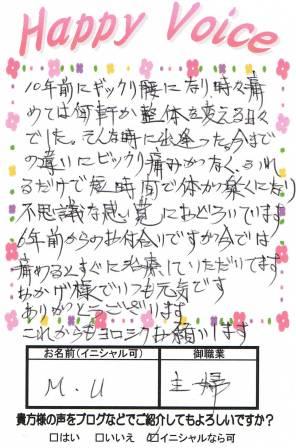 Happy Voice
10年前にギックリ腰になり時々痛
めては何軒か整体を変える日々
でした。そんな時に出逢った。今まで
の違いにビックリ痛みがなく、ふれ
るだけで短時間で体が楽になり
不思議な感覚におどろいています
6年前からのお付合いですが今では
痛めるとすぐに治療していただいてます
おかげ様でいつも元気です
ありがとうございます
これからもヨロシクお願いします
お名前(イニシャル可) 御職業
M.U 主婦
貴方様の声をブログなどでご紹介してもよろしいですか？
□はい □いいえ ☑イニシャルなら可